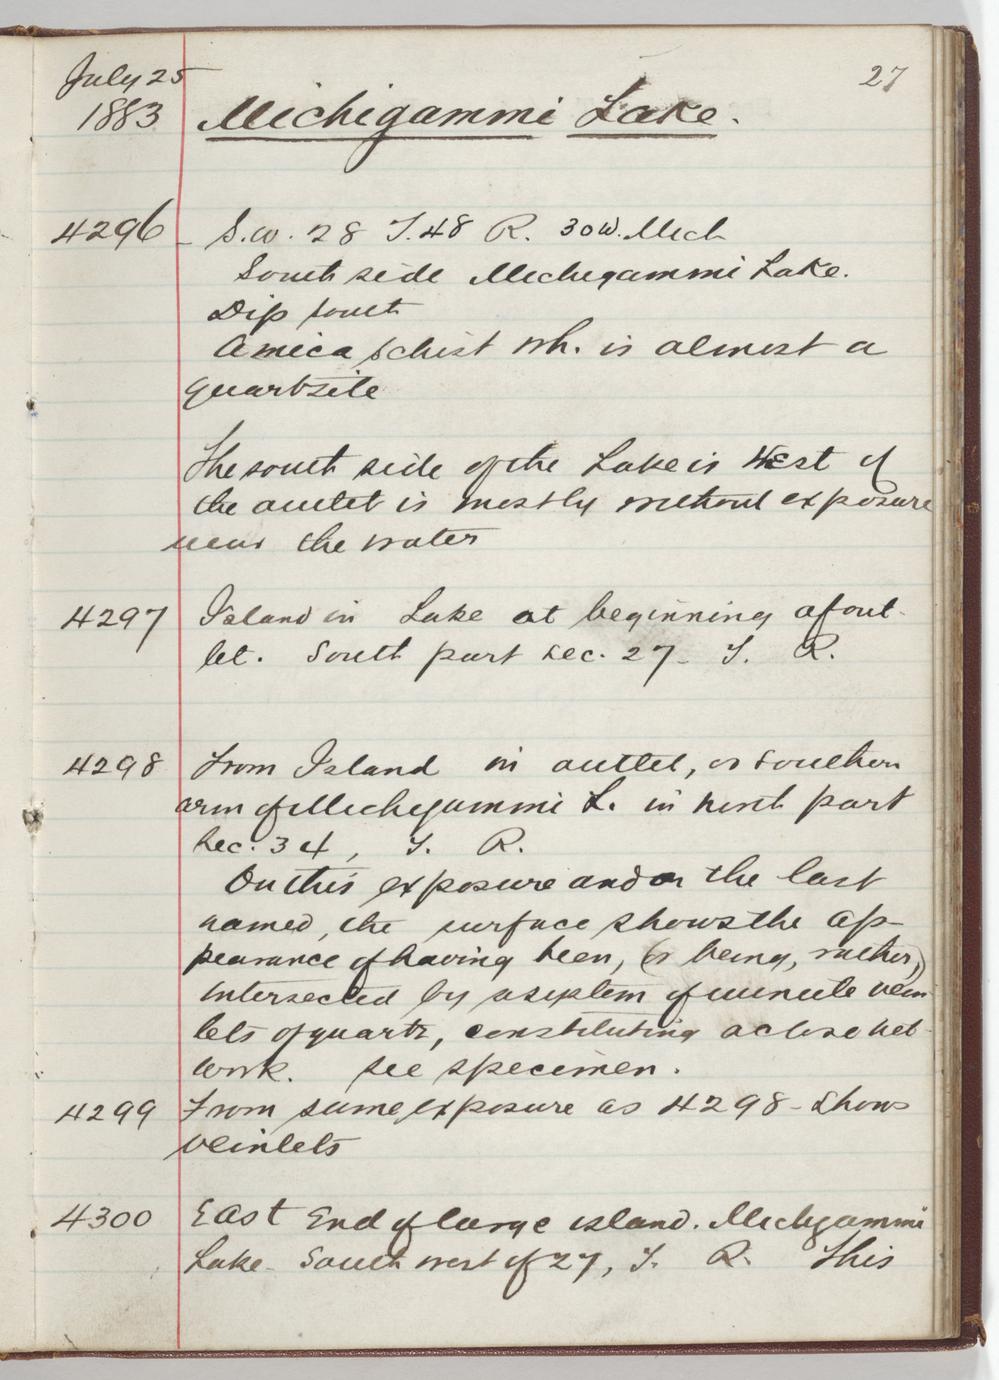 27
July 25
1883 Michigammi Lake.
4296 - S.W. 28 T.48 R. 30W. Mich
South side Michigammi Lake.
Dip south
A mica schist wh. is almost a
quartzite
The south side of the Lake is West of
the outlet is mostly without exposure
near the water
4297 Island in Lake at beginning of out-
let. South part Sec. 27- T. R.
4298 From Island in outlet, or southern
arm of Michigammi L. in north part
Sec. 34, T. R.
On this exposure and on the last
named, the surface shows the ap-
pearance of having been, (or being, rather,)
intersected by a system of minute vein
lets of quartz, constituting a close net-
work. See specimen.
4299 From same exposure as 4298 - Shows
veinlets
4300 East End of large island. Michigammi
Lake. South west of 27, T. R. This